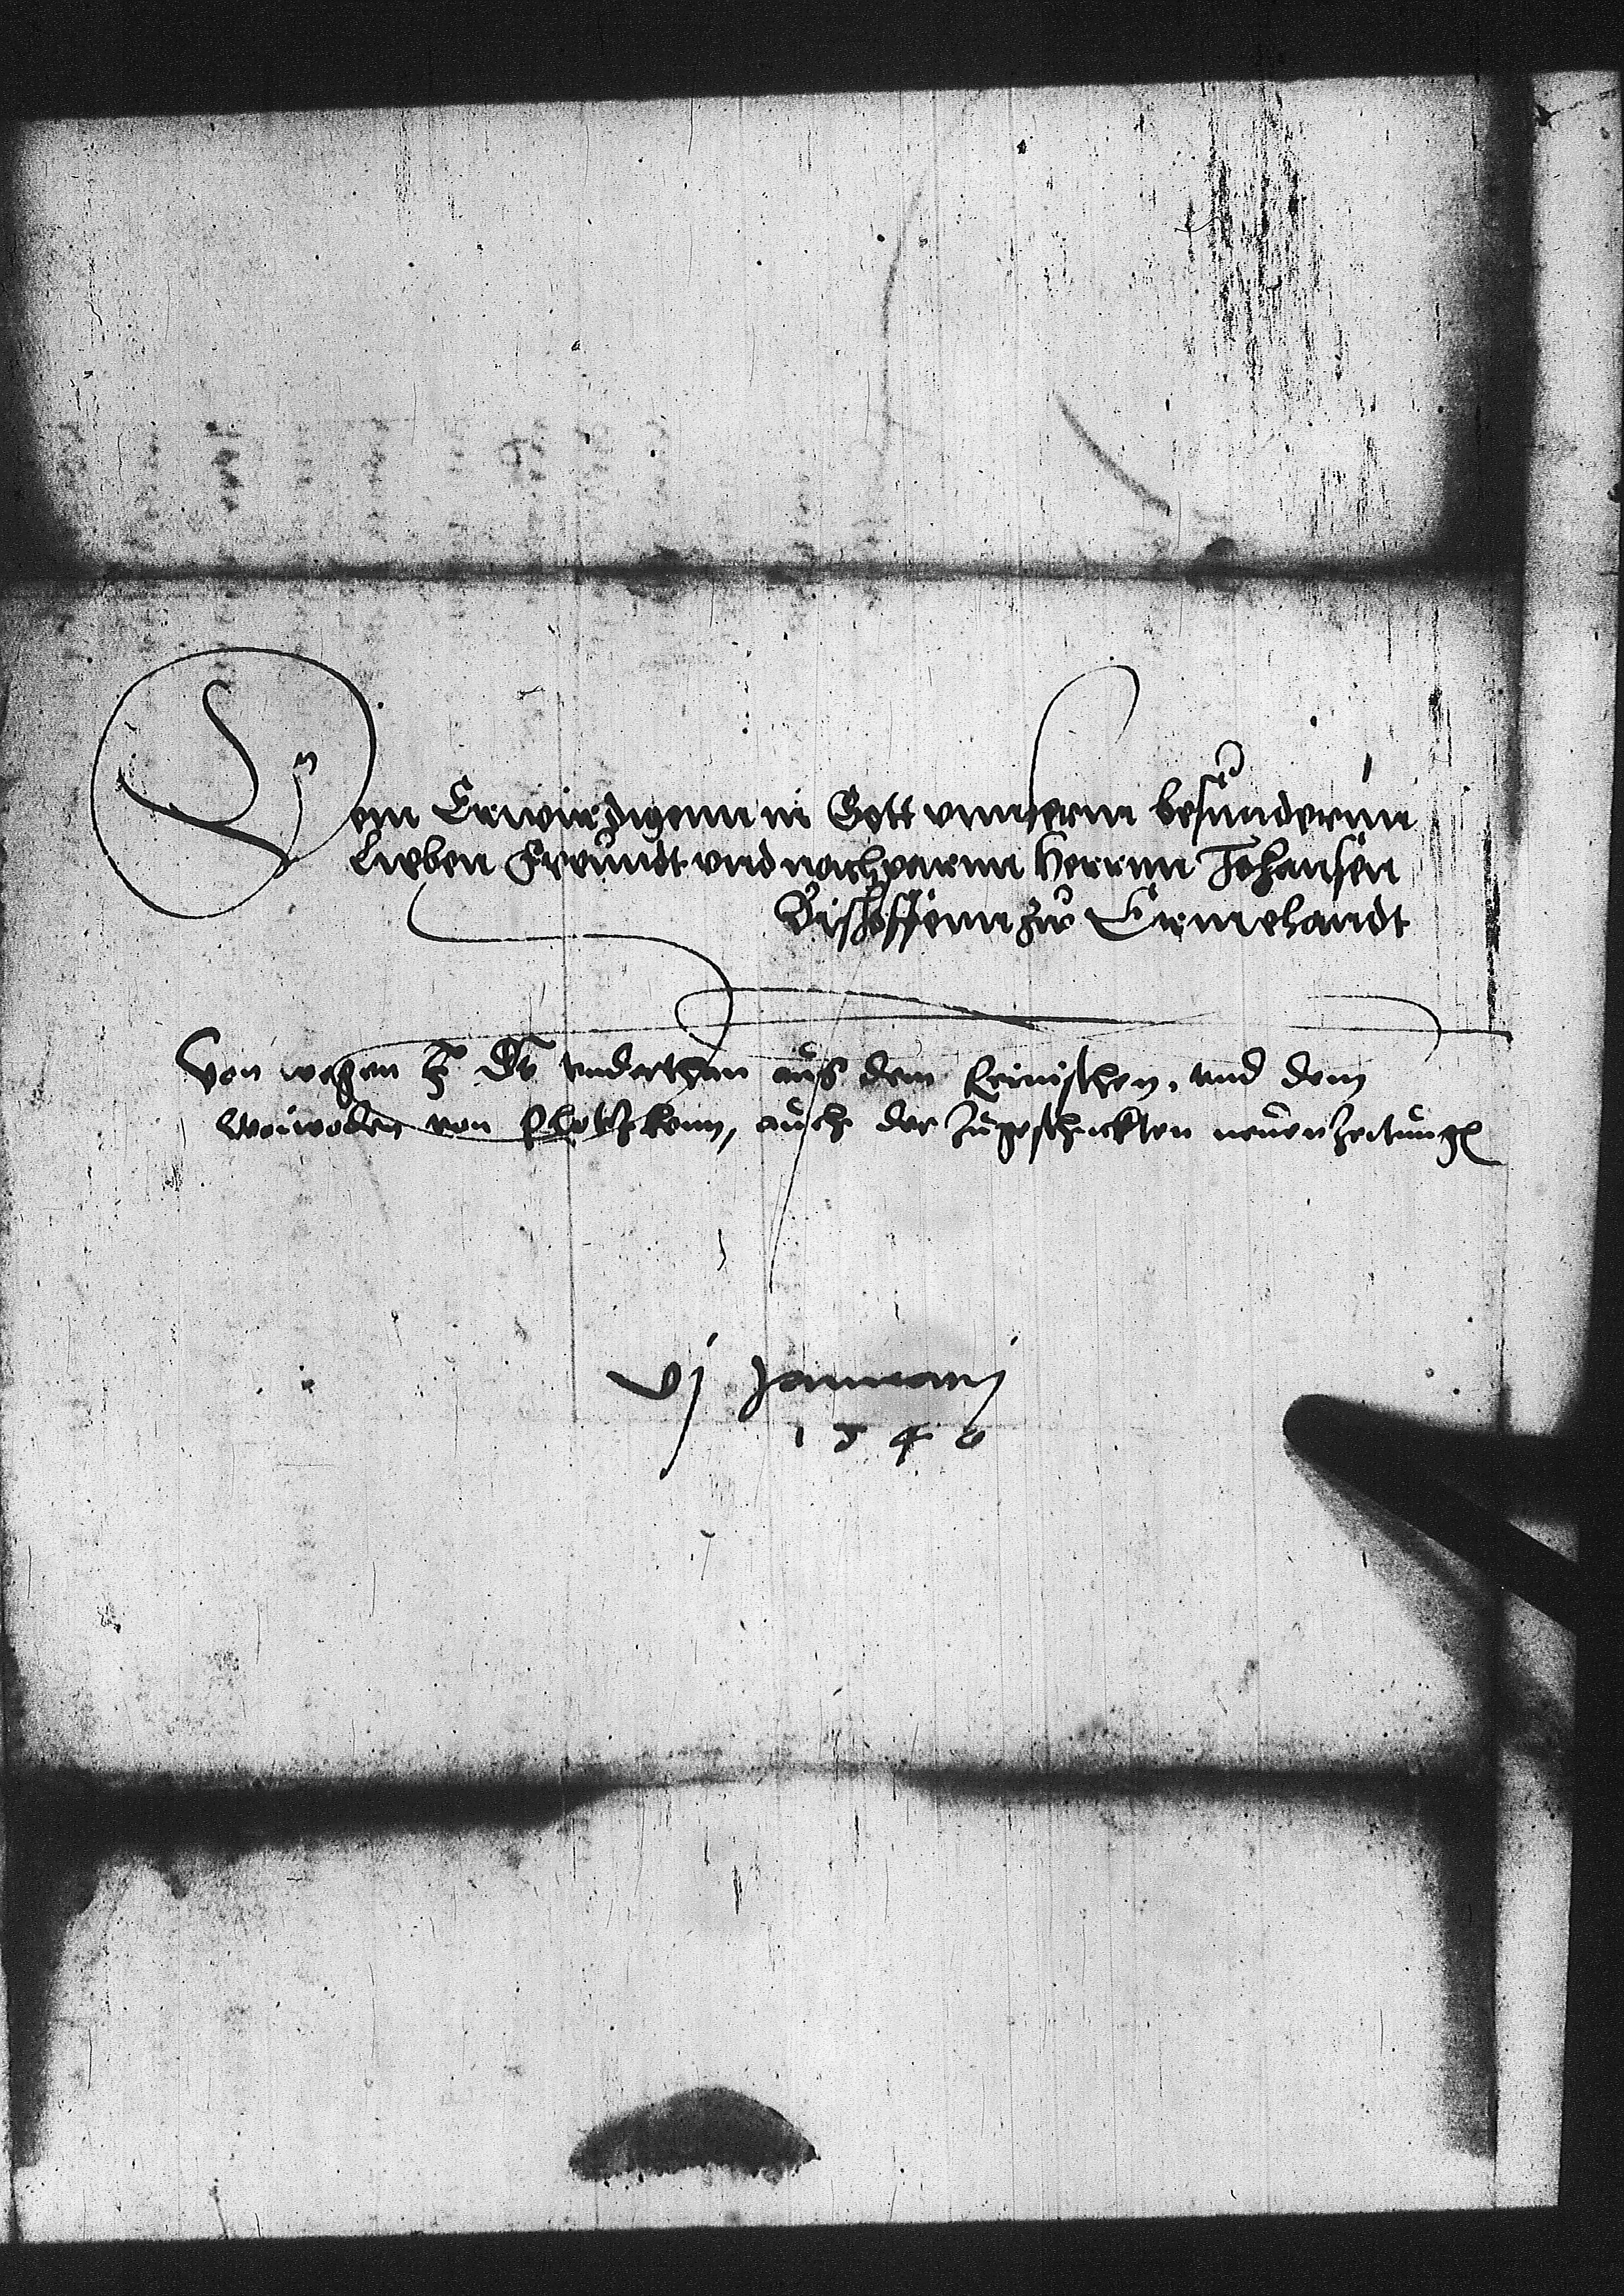 Dem Erwirdigenn in Gott vnnserm besundernn
Lieben Freundt vnd nachparnn Herrnn Johansen
Bischoffenn zu Ermelandt
Von wegen F Dt vnderthan aus dem Reinischen, vnd dem
Woiwoden von Plotzkenn, auch der zugeschickten neuen zeitung
vj Januarij
1540